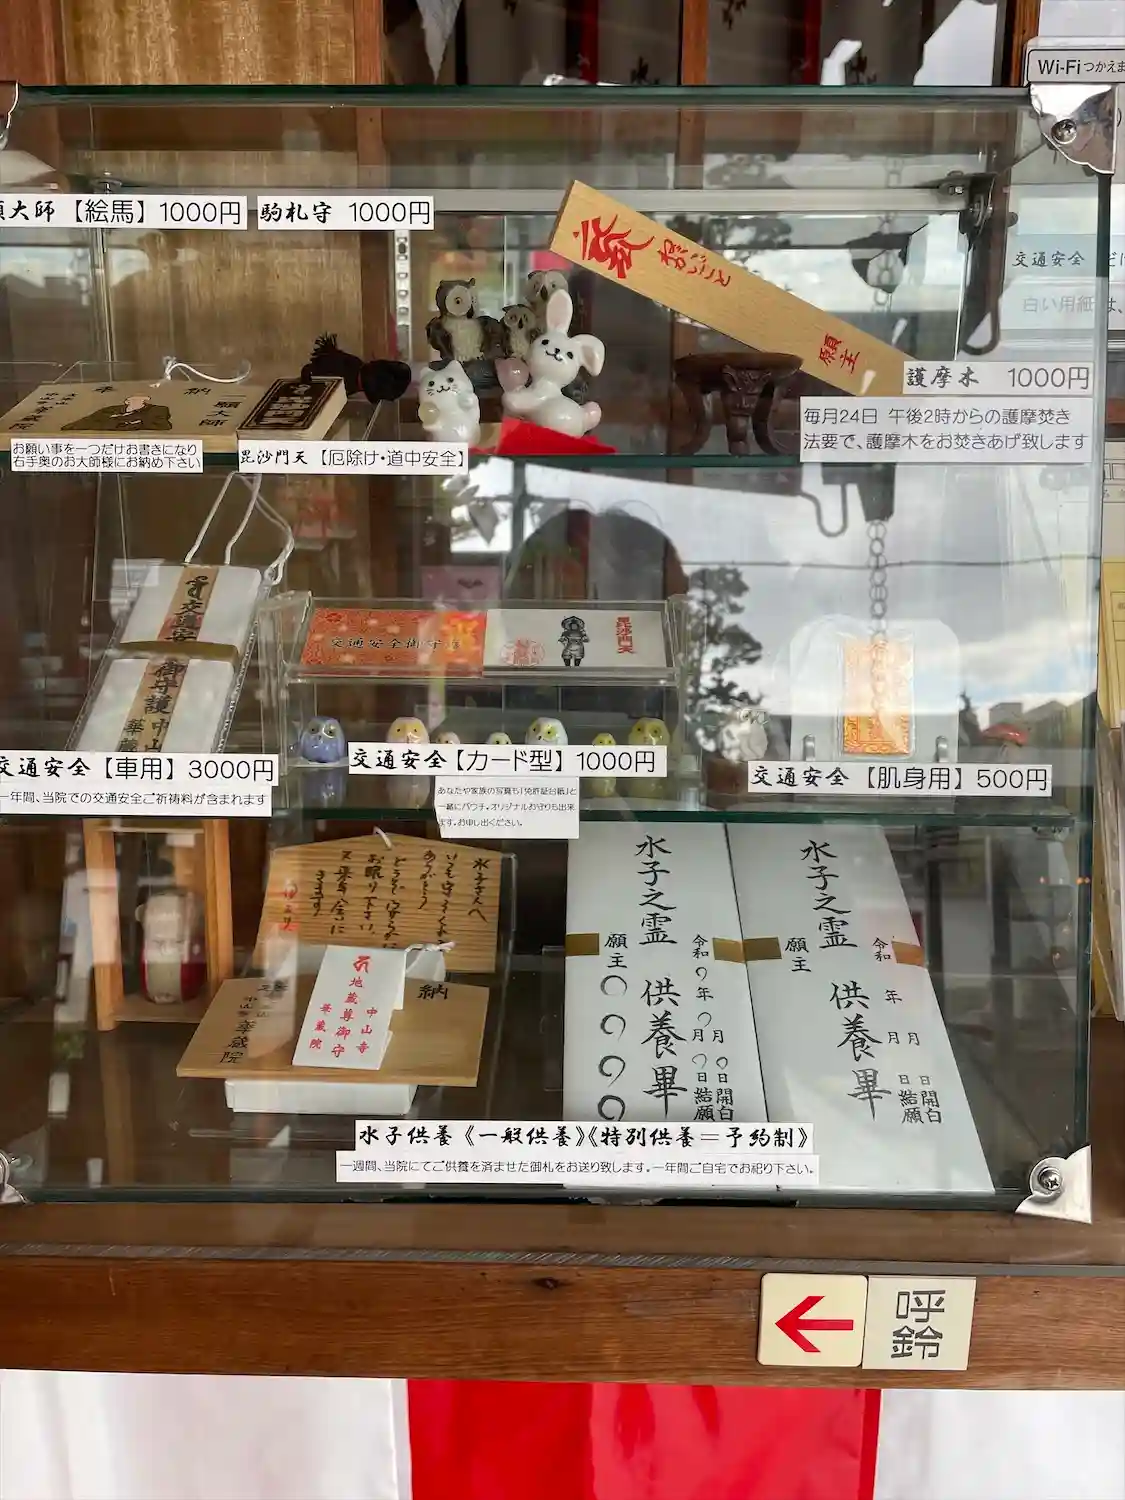 Wi-Fiつかえま
大師【絵馬】1000円
駒札守 1000円
おねがいごと
願主
交通安全
白い用紙は、
護摩木 1000円
毎月24日 午後2時からの護摩焚き
法要で、護摩木をお焚きあげ致します
奉納
一願大師
お願い事を一つだけお書きになり
右手奥のお大師様にお納め下さい
毘沙門天【厄除け・道中安全】
交通安全御守護
毘沙門天
交通安
御守護
中山
華蔵
交通安全【車用】3000円
一年間、当院での交通安全ご祈祷料が含まれます
交通安全【カード型】1000円
あなたや家族の写真も「免許証台紙」と
一緒にパウチ。オリジナルお守りも出来
ます。お申し出ください。
交通安全【肌身用】500円
水子さんへ
いつも守ってくれて
ありがとう
お眠り下さい。
納
中山寺
華蔵院
地蔵尊御守
中山寺
華蔵院
水子之霊 供養畢
願主 〇〇〇〇
令和〇年
〇月〇日開白
〇月〇日結願
水子之霊 供養畢
願主
令和 年
月 日開白
月 日結願
水子供養《一般供養》《特別供養=予約制》
一週間、当院にてご供養を済ませた御札をお送り致します。一年間ご自宅でお祀り下さい。
呼
鈴